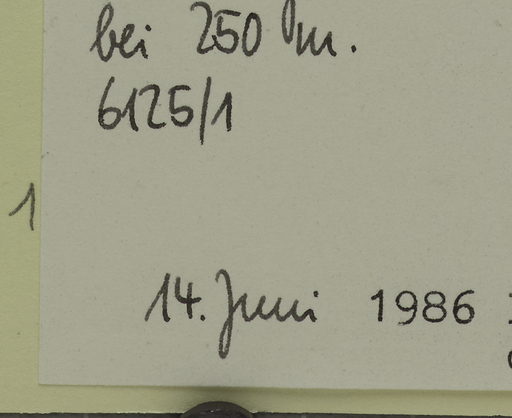 bei 250 m.
6125/1
1
14. Juni 1986